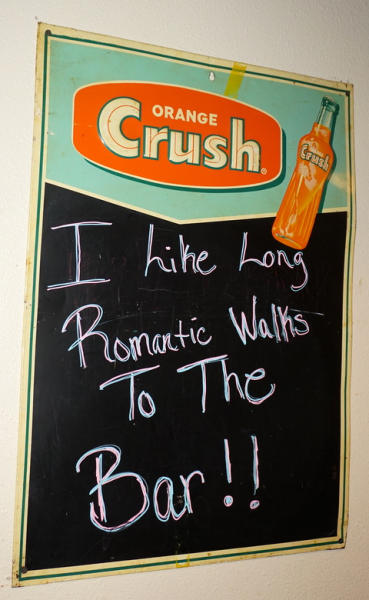 ORANGE
Crush®
Crush
I Like Long
Romantic Walks
To The
Bar!!